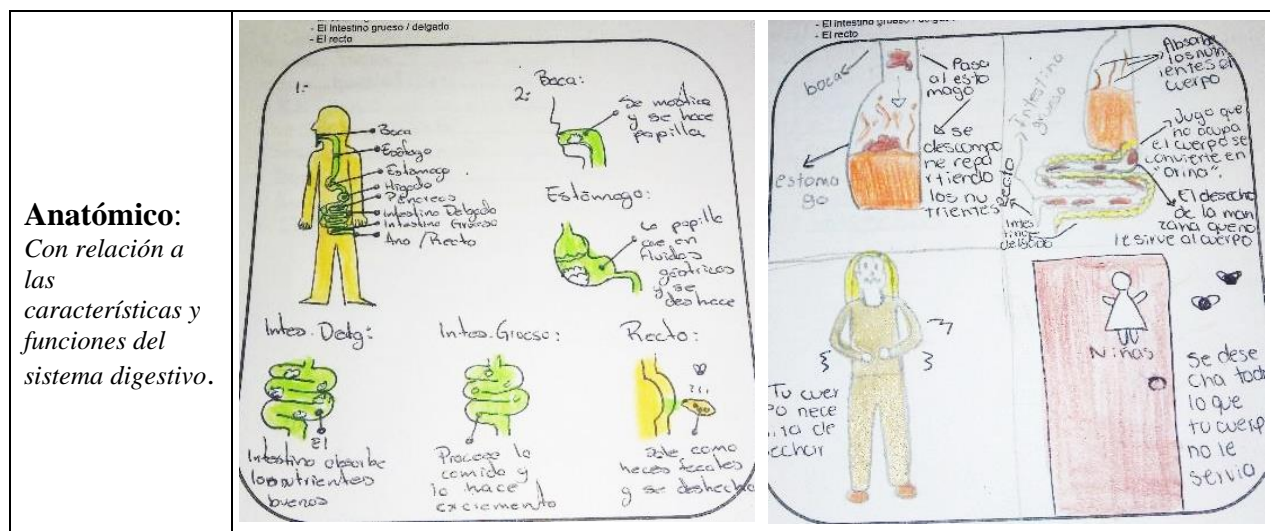 Anatómico:
Con relación a
las
características y
funciones del
sistema digestivo.
- El intestino grueso / delgado
- El recto
1:-
Boca
Esófago
Estómago
Hígado
Páncreas
Intestino Delgado
Intestino Grueso
Ano / Recto
2:
Boca:
Se mastica
y se hace
papilla
Estómago:
La papilla
cae en
fluidos
gástricos
y se
deshace
Intes. Delg:
El
Intestino absorbe
los nutrientes
buenos
Intes. Grueso:
Procesa la
comida y
lo hace
excremento
Recto:
Sale como
heces fecales
y se deshecha
- El intestino grueso
- El recto
boca
Pasa
al esto
mago
se
descompo
ne repa
rtiendo
los nu
trientes
estoma
go
Intestino
grueso
recto
Intes
tino
delgado
Absorbe
los nutr
ientes el
cuerpo
Jugo que
no ocupa
el cuerpo se
convierte en
"orina".
El desecho
de la man
zana que no
le sirve al cuerpo
Tu cuer
po nece
sita de
sechar
Niñas
Se dese
cha todo
lo que
tu cuerpo
no le
servia